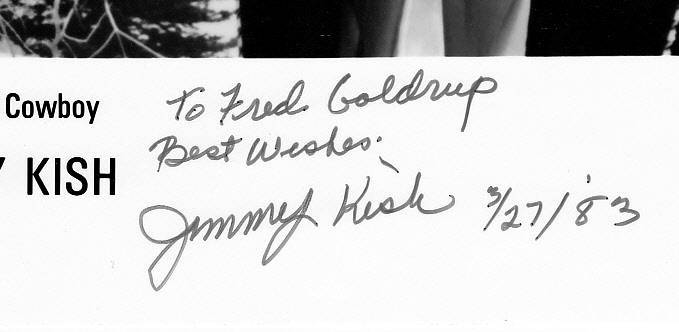 Cowboy
KISH
To Fred Goldrup
Best Wishes.
Jimmy Kish 3/27/'83